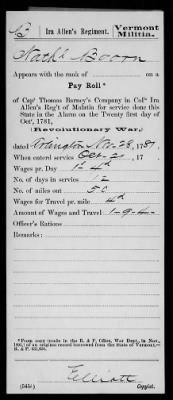 B | Ira Allen's Regiment. | Vermont Militia.
Nathl Boorn
Appears with the rank of on a
Pay Roll*
of Capt Thomas Barney's Company in Colo Ira
Allen's Reg't of Malitia for service done this
State in the Alarm on the Twenty first day of
Octr, 1781,
(Revolutionary War,)
dated Arlington Nov. 28, 1781.
When entered service Oct. 21, 17
Wages pr. Day 1s 4d
No. of days in service 12
No. of miles out 50
Wages for Travel pr. mile 4d
Amount of Wages and Travel 1-9-4
Officer's Rations
Remarks:
*From copy made in the R. & P. Office, War Dept., in Nov.,
of an original record borrowed from the State of Vermont.—
R. & P.
Elliott
Copyist.